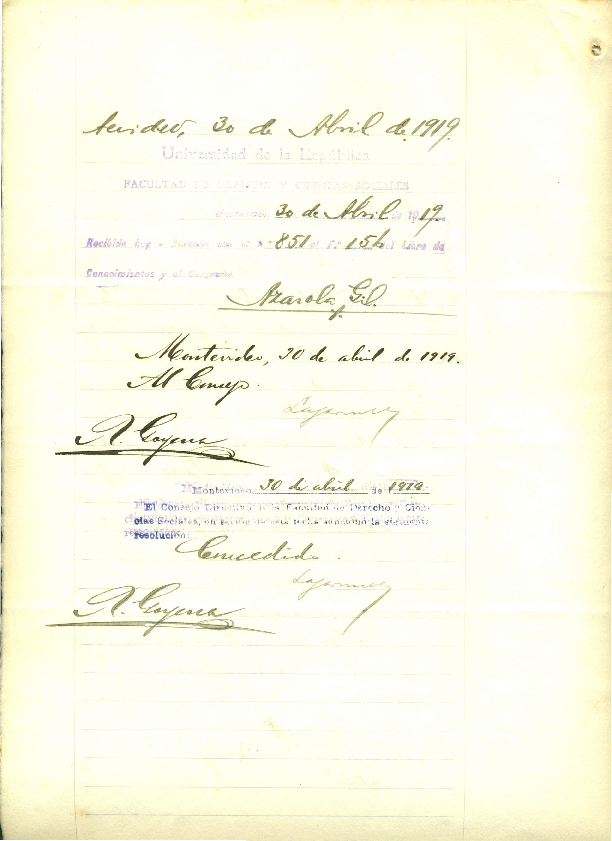 30 de Abril de 1919.
Universidad de la República
FACULTAD DE DERECHO Y CIENCIAS SOCIALES
30 de Abril de 1919
Recibido hoy Nº 851 al Fº 154 del Libro de
Conocimientos y al
Azarola Gil.
Montevideo, 30 de abril de 1919.
Al Consejo.
R. Goyena
Montevideo 30 de abril de 1919
El Consejo Directivo de la Facultad de Derecho y Cien-
cias Sociales, en sesión de esta fecha sancionó la siguiente
resolución:
Concedido.
R. Goyena